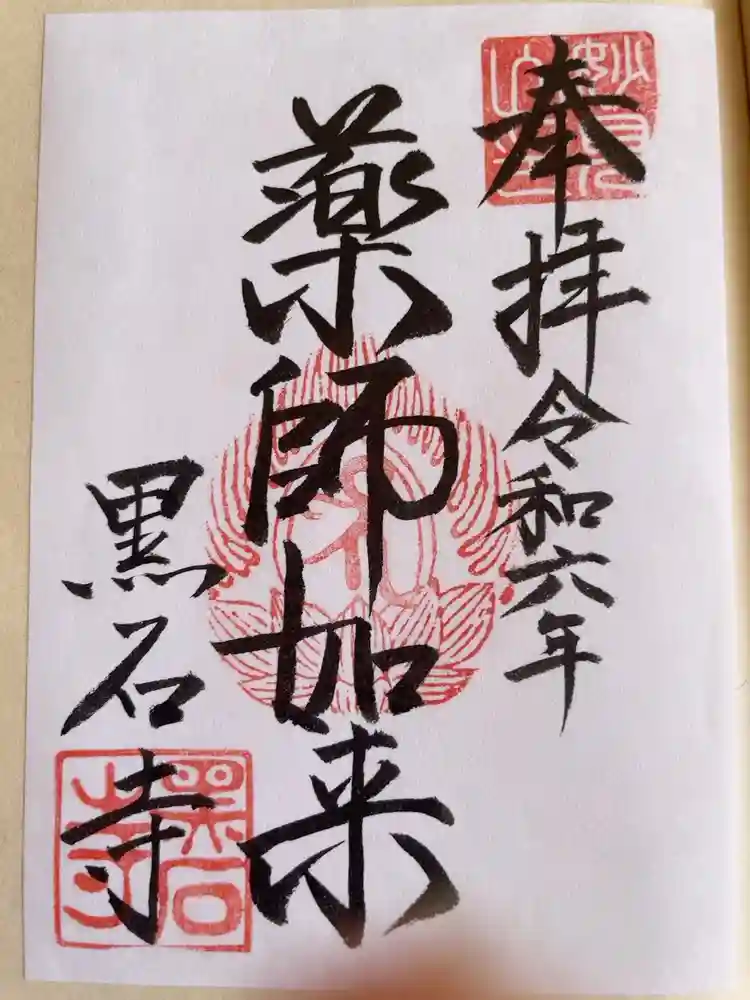 奉拝令和六年
薬師如来
黒石寺
黒石寺